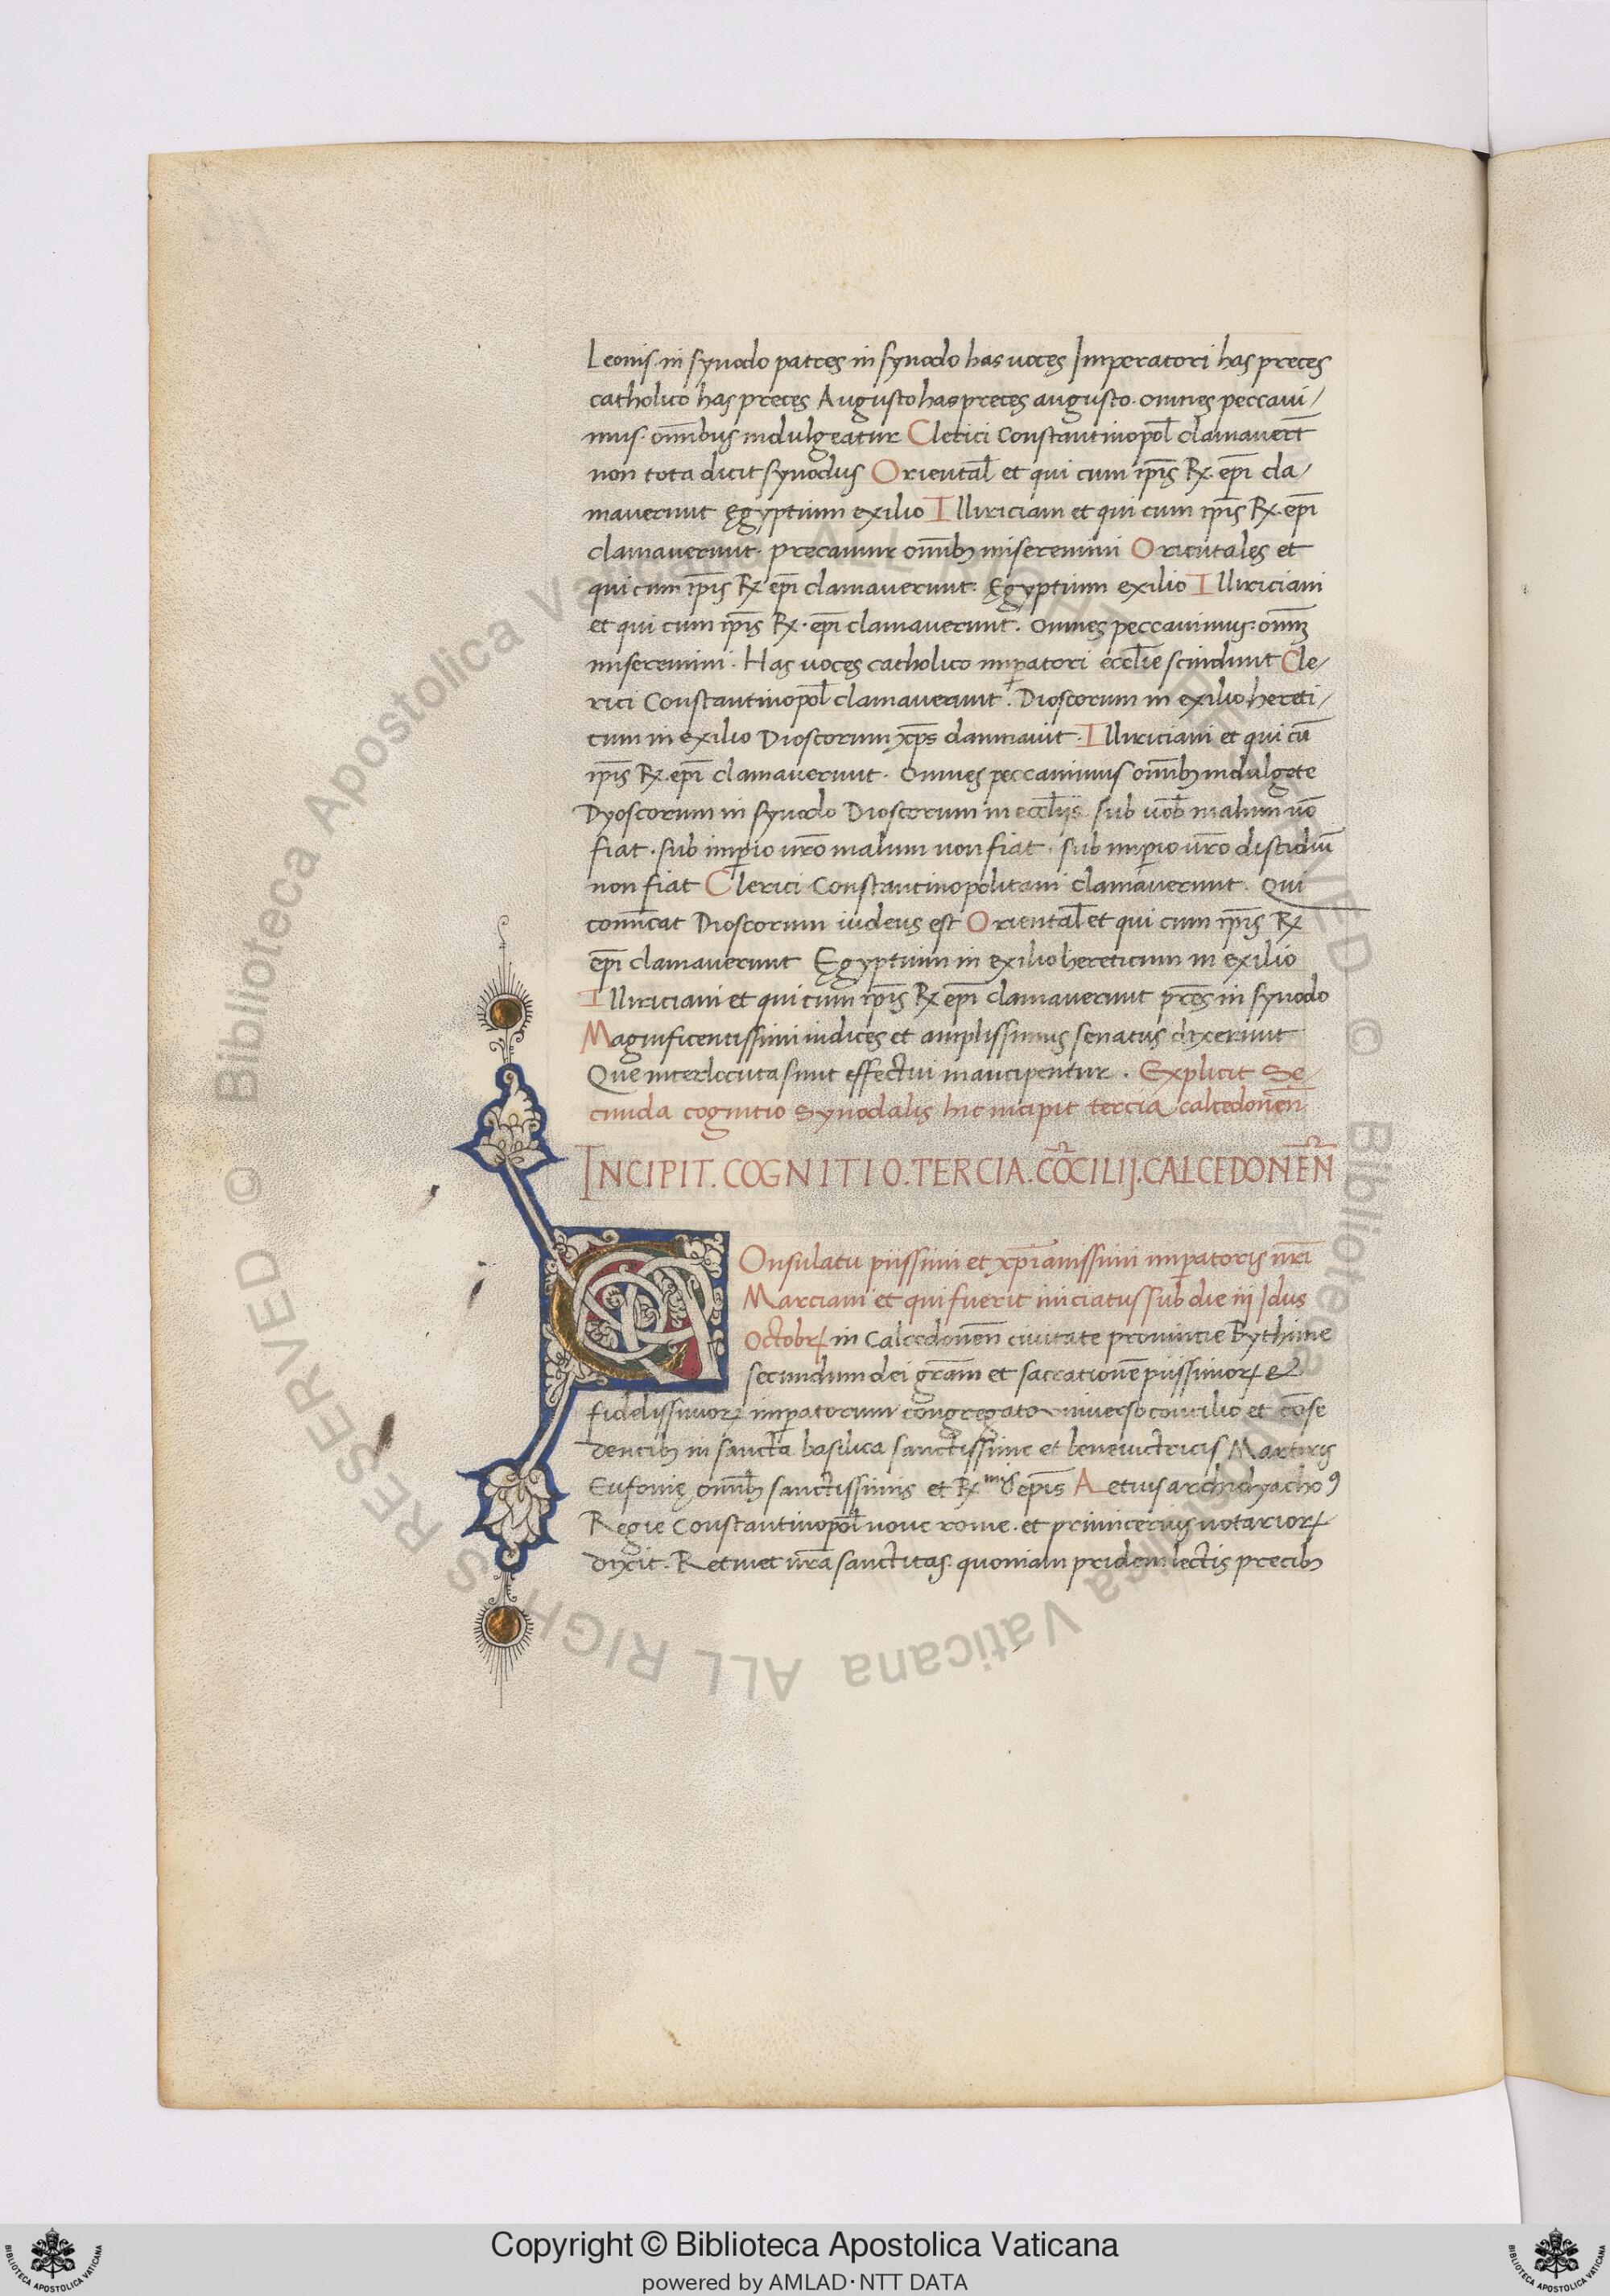 Leonis. in synodo patres in synodo has uoces Imperatori has preces
catholico has preces Augusto has preces augusto. omnes peccaui/
mus. om̅ibus indulgeatur Clerici Constantinopol̅ clamauer̅t
non tota dicit synodus Oriental̅ et qui cum ip̅is R℞. ep̅i cla/
mauerunt ęgyptium exilio Illiriciani et qui cum ip̅is R℞. ep̅i
clamauerunt. precamur om̅ibꝫ miseremini Orientales et
qui cum ip̅is R℞ ep̅i clamauerunt. Ęgyptium exilio Illiriciani
et qui cum ip̅is R℞. ep̅i clamauerunt. omnes peccauimus. om̅iꝫ
miseremini. Has uoces catholico imp̲atori eccl̅ie scindunt Cle/
rici Constantinopol̅ clamauerunt. Dioscorum in exilio hereti/
cum in exilio Dioscorum xp̅s damnauit. Illiriciani et qui cu̅
ip̅is R℞. ep̅i clamauerunt. omnes peccauimus om̅ibꝫ indulgete
Dyoscorum in synodo Dioscorum in eccl̅iis. sub uob̅ malum no̅
fiat. sub imp̲io ur̅o malum non fiat. sub imp̲io ur̅o discidiu̅
non fiat Clerici Constantinopolitani clamauerunt. Qui
com̅icat Dioscorum iudeus est Oriental̅ et qui cum ip̅is R℞
ep̅i clamauerunt Ęgyptium in exilio hereticum in exilio
Illiriciani et qui cum ip̅is R℞ ep̅i clamauerunt pr̅es in synodo
Magnificentissimi iudices et amplissimus senatus dixerunt
Que interlocuta sunt effectui mancipentur. Explicit Se/
cunda cognitio Synodalis hic incipit tercia calcedone̅n
INCIPIT. COGNITIO. TERCIA. CO̅CILIJ. CALCEDONE̅N
Consulatu piissimi et xp̅ianissimi imp̲atoris nr̅i
Marciani et qui fuerit iniciatus sub die iij Idus
Octobrꝭ in Calcedone̅n ciuitate prouincie Bythinie
secundum dei gr̅am et sacratione̅ piissimoꝝ &
fidelissimoꝝ imp̲atorum congregato uniuerso concilio et co̅se
dentibꝫ in sancta basilica sanctissime et beneuictricis Martiris
Eufomię om̅ibꝫ sanctissimis et R℞mis ep̅is Aetius archidyachoꝰ
Regie Constantinopol̅ noue rome. et primicerius notarioꝝ
dixit. Retinet ur̅a sanctitas. quoniam pridem lectis precibꝫ
Copyright © Biblioteca Apostolica Vaticana
powered by AMLAD·NTT DATA
© Biblioteca Apostolica Vaticana ALL RIGHTS RESERVED © Biblioteca Apostolica Vaticana ALL RIGHTS RESERVED
BIBLIOTECA APOSTOLICA VATICANA
BIBLIOTECA APOSTOLICA VATICANA